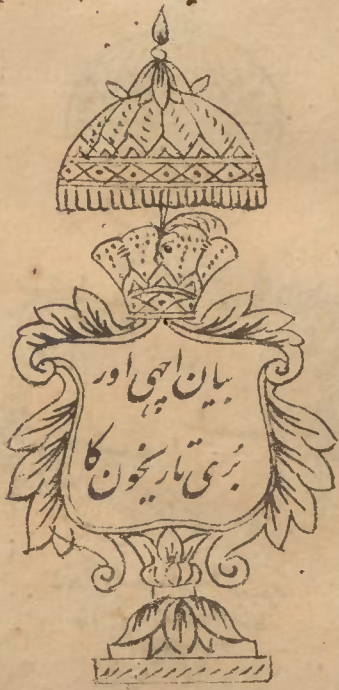 بیان اچھی اور
بُری تاریخون کا